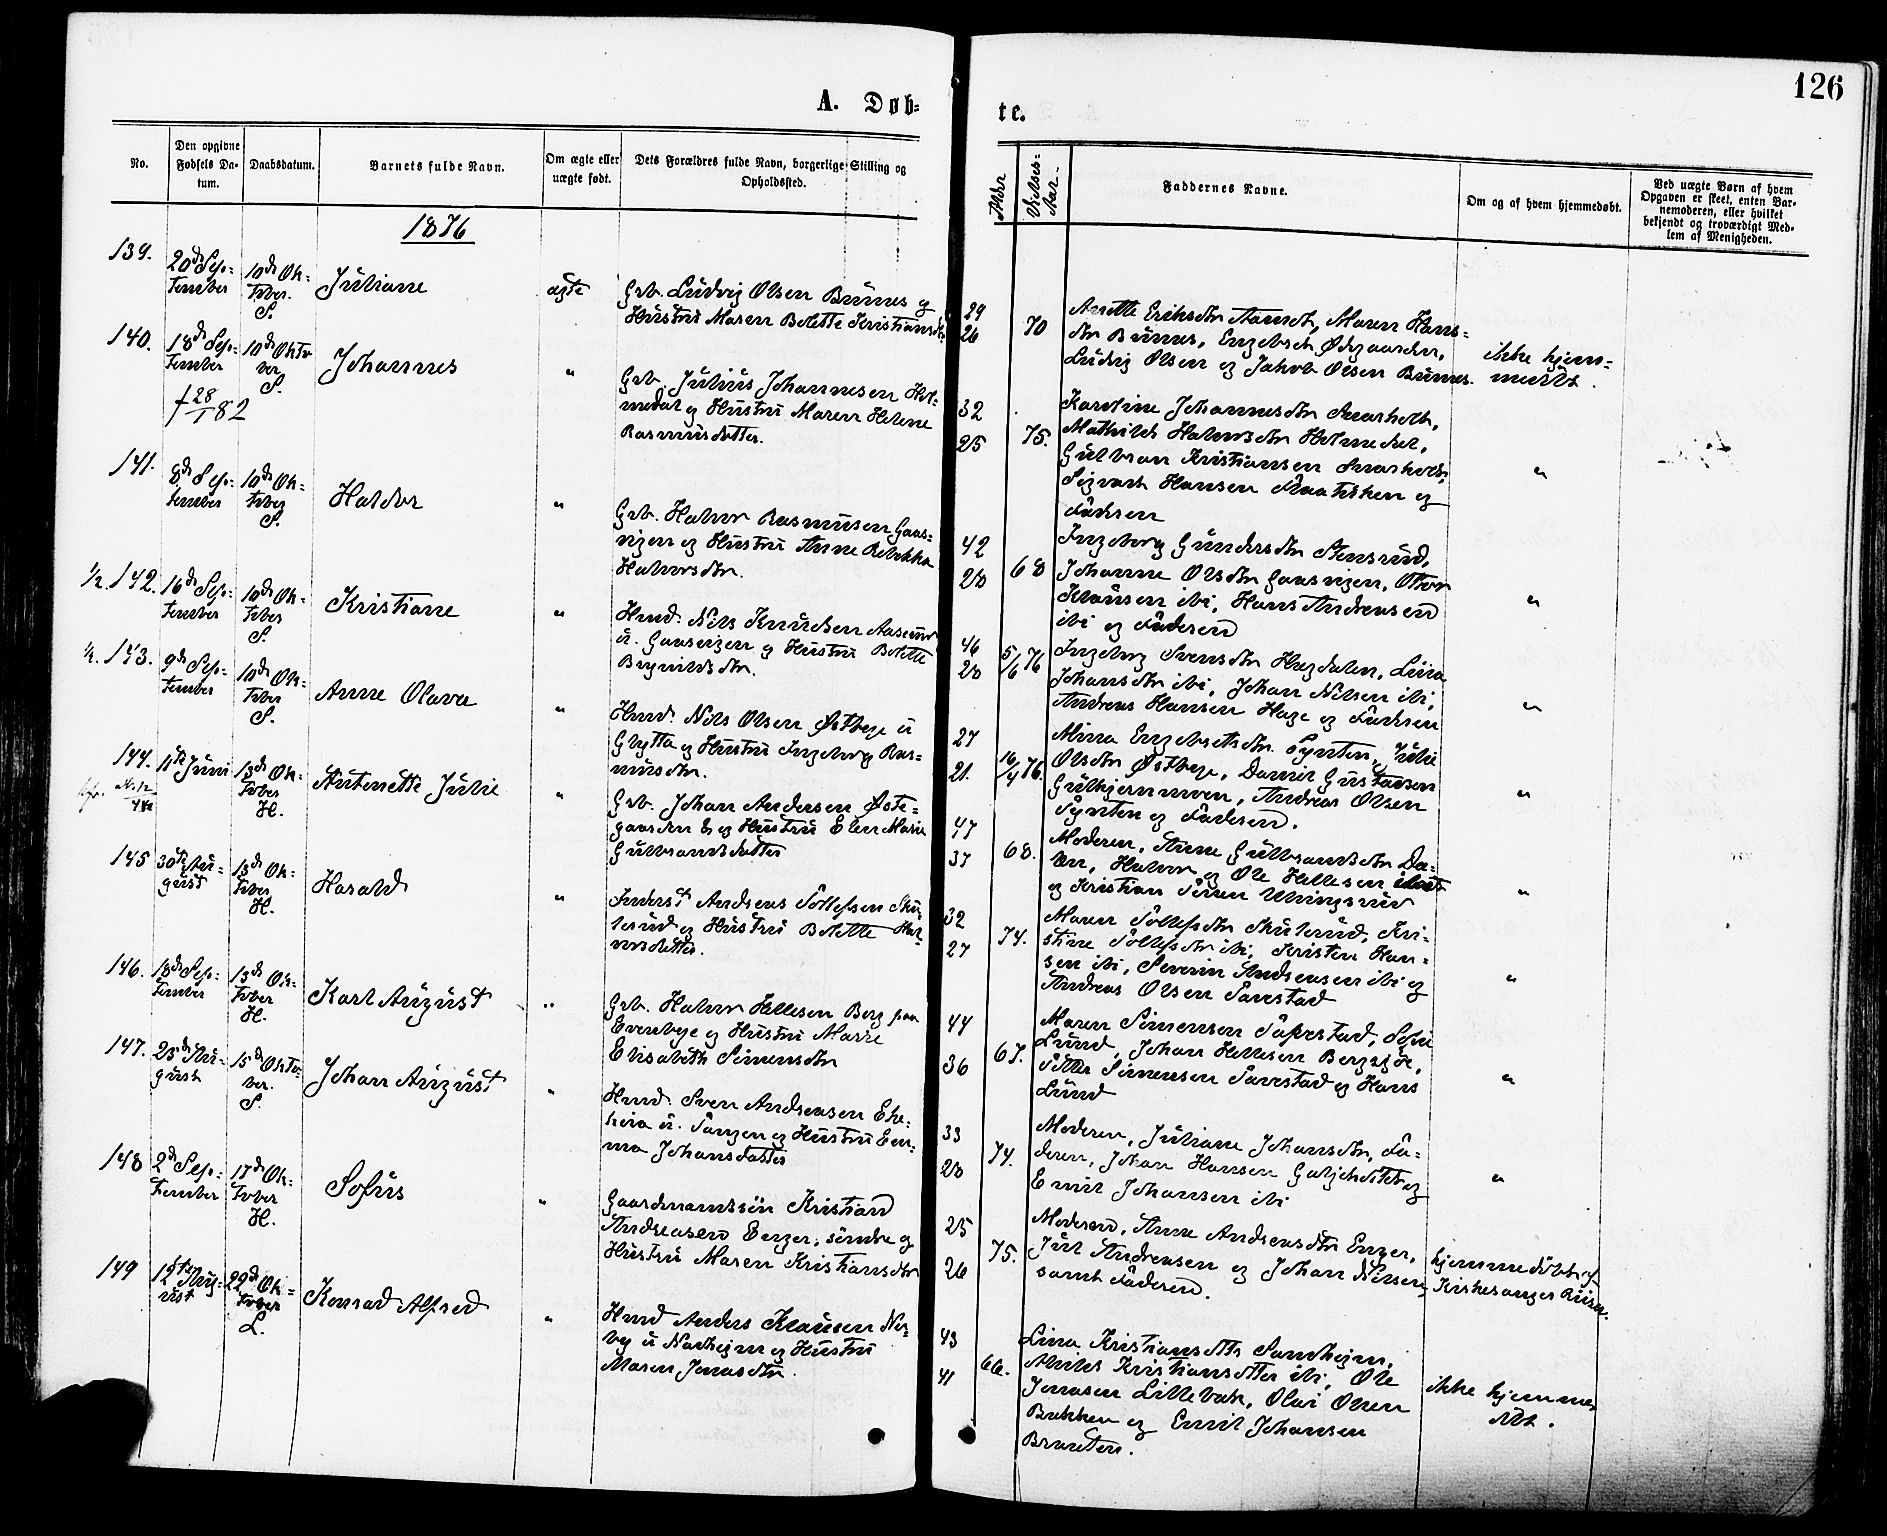 126
A. Døb-
te.
No.
Den opgivne
Fødsels Da-
tum.
Daabsdatum.
Barnets fulde Navn.
Om ægte eller
uægte født.
Dets Forældres fulde Navn, borgerlige Stilling og
Opholdssted.
Alder
Vielses-
Aar.
Faddernes Navne.
Om og af hvem hjemmedøbt.
Ved uægte Børn af hvem
Opgaven er skeet, enten Bar-
nemoderen, eller hvilket
bekjendt og troværdigt Med-
lem af Menigheden.
1876
139.
20de Sep-
tember
10de Ok-
tober.
S.
Juliane
ægte
Grb. Ludvig Olsen Bunes og
Hustru Maren Bolette Kristiansdtr.
29
26
70
Anette Eriksdtr Aamot, Maren Hans-
dtr Bunes, Engebret Ødegaarden,
Ludvig Olsen og Jakob Olsen Bunes.
ikke hjem-
medøbt.
140.
18de Sep-
tember
10de Okto
ber
S.
Johannes
"
Grb. Julius Johannesen Hol-
medal og Hustru Maren Helene
Rasmusdatter.
† 28/1 82
32
25
75.
Karoline Johannesdtr
Mathilde Halvorsdtr Holmedal,
Gulbran Kristiansen
Sigvart Hansen og
Faderen
"
141.
8de Sep-
tember
10de Ok-
tober
S.
Haldor
"
Grb. Halvor Rasmusen Gaas-
vigen og Hustru Anne Rebekka
Halvorsdtr.
42
28
68
Ingeborg Gundersdtr Stensrud,
Johanne Olsdtr Gaasvigen,
Klausen ibi, Hans Andreasen
ibi og Faderen
"
1/2. 142.
16de Sep-
tember
10de Ok-
tober
S.
Kristiane
"
Hmd. Nils Knudsen Aaserud
u. Gaasvigen og Hustru Bolette
Brynildsdtr.
46
28
5/6 76
Ingeborg Svensdtr Hagdalen, Lina
Johansdtr ibi, Johan Nilsen ibi,
Andreas Hansen Hage og Faderen
"
1/2. 143.
9de Sep-
tember
10de Ok-
tober
S.
Anne Olava
"
Hmd. Nils Olsen Østbye u
Glytta og Hustru Ingeborg Ras-
musdtr.
27
21.
16/4 76.
Mina Engebretsdtr Synten, Julie
Olsdtr Østbye, Daniel Gustavsen
Gulhjernmoen, Andreas Olsen
Synten og Faderen.
"
144.
11te Juni
13de Ok-
tober
H.
Antonette Julie
"
Grb. Johan Andersen Øste-
gaarden E og Hustru Elen Marie
Gulbrandsdatter
47
37
68.
Moderen, Anne Gulbrandsdtr Da-
len, Halvor og Ole Hellesen
og Kristian
"
145
30te Au-
gust
13de Ok-
tober
H.
Harald
"
Inderst Andreas Tollefsen Sku-
lerud og Hustru Bolette Hal-
vorsdatter.
32
27
74.
Maren Tollefsdtr Skulerud, Kri-
stine Tollefsdtr ibi, Kristen Han-
sen ibi, Severin Andreasen ibi og
Andreas Olsen Tavestad
"
146.
18de Sep-
tember
13de Ok-
tober
H.
Karl August
"
Grb. Halvor Hellesen Berg paa
Evenbye og Hustru Marie
Elisabeth Simensdtr
44
36
67.
Maren Simensen Tavestad, Sofie
Lund, Johan Hellesen Bergsjøe,
Simensen Tavestad og Hans
Lund
"
147.
25de Au-
gust
15de Okto-
ber.
S.
Johan August
"
Hmd. Sven Andreasen Eke-
heia u. Tangen og Hustru Em-
ma Johansdatter
33
28
74.
Moderen, Juliane Johansdtr, Fa-
deren, Johan Hansen og
Emil Johansen ibi
"
148
2de Sep-
tember
17de Ok-
tober
H.
Sofus
"
Gaardmandssøn Kristian
Andreasen Enger, søndre og
Hustru Maren Kristiansdtr
25
26
75.
Moderen, Anne Andreasdtr Enger,
Juul Andreasen og Johan Nilsen,
samt Faderen.
hjemmedøbt af
Kirkesanger Riiser.
149
12te Aug-
ust
22de Ok-
tober
L.
Konrad Alfred
"
Hmd Anders Klausen Ner-
by u Nordhejm og Hustru
Maren Jensdtr.
43
41
66.
Lina Kristiansdtr Sandhejm,
Kristiansdtter ibi, Ole
Jensen Lillebæk, Olavi Olsen
Bakken og Emil Johansen
Braaten.
ikke hjemme-
døbt.